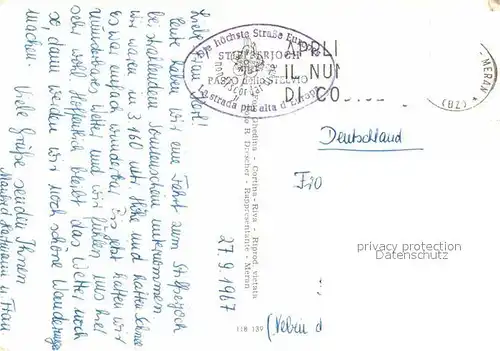 Liebe Frau
Heute haben wir eine Fahrt zum Stilfserjoch
bei strahlendem Sonnenschein unternommen
wir waren in 3 160 mtr. Höhe und hatten Schnee
Es war einfach wunderbar. Bis jetzt hatten wir
wunderbares Wetter und wir fühlen uns hier
sehr wohl. Hoffentlich bleibt das Wetter noch
so, dann werden wir noch schöne Wanderungen
machen. Viele Grüße senden Ihnen
Manfred u. Frau.
27.9.1967
Die höchste Straße Europas
STILFSERJOCH
PASSO STELVIO
La strada più alta d'Europa
IL NUM
DI CO
MERAN
(BZ)
Ghedina - Cortina-Riva - Riprod. vietata
R. Drescher - Rappresentanze - Meran
118 139
Deutschland
privacy protection
Datenschutz